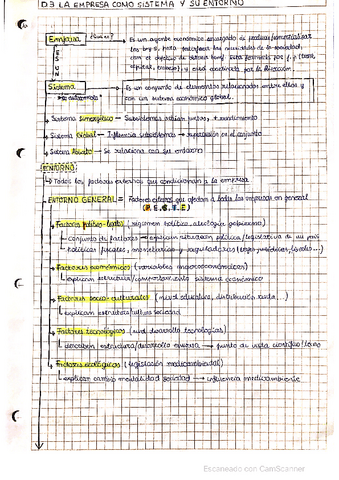 D.3 LA EMPRESA COMO SISTEMA Y SU ENTORNO
Empresa → Es un agente económico encargado de producir/comercializar
los b y s, para satisfacer las necesidades de la sociedad,
con el objetivo de obtener benf. Está formada por f.p (tierra,
capital, trabajo), y está coordinada por la dirección.
ES UN
Sistema → Es un conjunto de elementos relacionados entre ellos y
con un sistema económico global.
Sistema Sinergético → Subsistemas juntos + rendimiento
Sistema Global → Influencia subsistemas → repercusión en el conjunto
Sistema Abierto → Se relaciona con su entorno
ENTORNO
Todos los factores externos que condicionan a la empresa
ENTORNO GENERAL = Factores externos que afectan a todas las empresas en general
(P.E.S.T.E)
Factores político-legales (régimen político, ideología gobierno)
conjunto de factores → explican situación política/legislativa de un país
políticas fiscales, monetarias y reguladoras (leyes jurídicas, locales...)
Factores económicos (variables macroeconómicas)
explican estructura/comportamiento sistema económico
Factores socio-culturales (nivel educativo, distribución renta...)
explican estructura/cultura sociedad
Factores tecnológicos (nivel desarrollo tecnologías)
describen estructura/desarrollo empresa → punto de vista científico/técno
Factores ecológicos (legislación medioambiental)
explican cambio mentalidad sociedad → influencia medioambiente
Escaneado con CamScanner